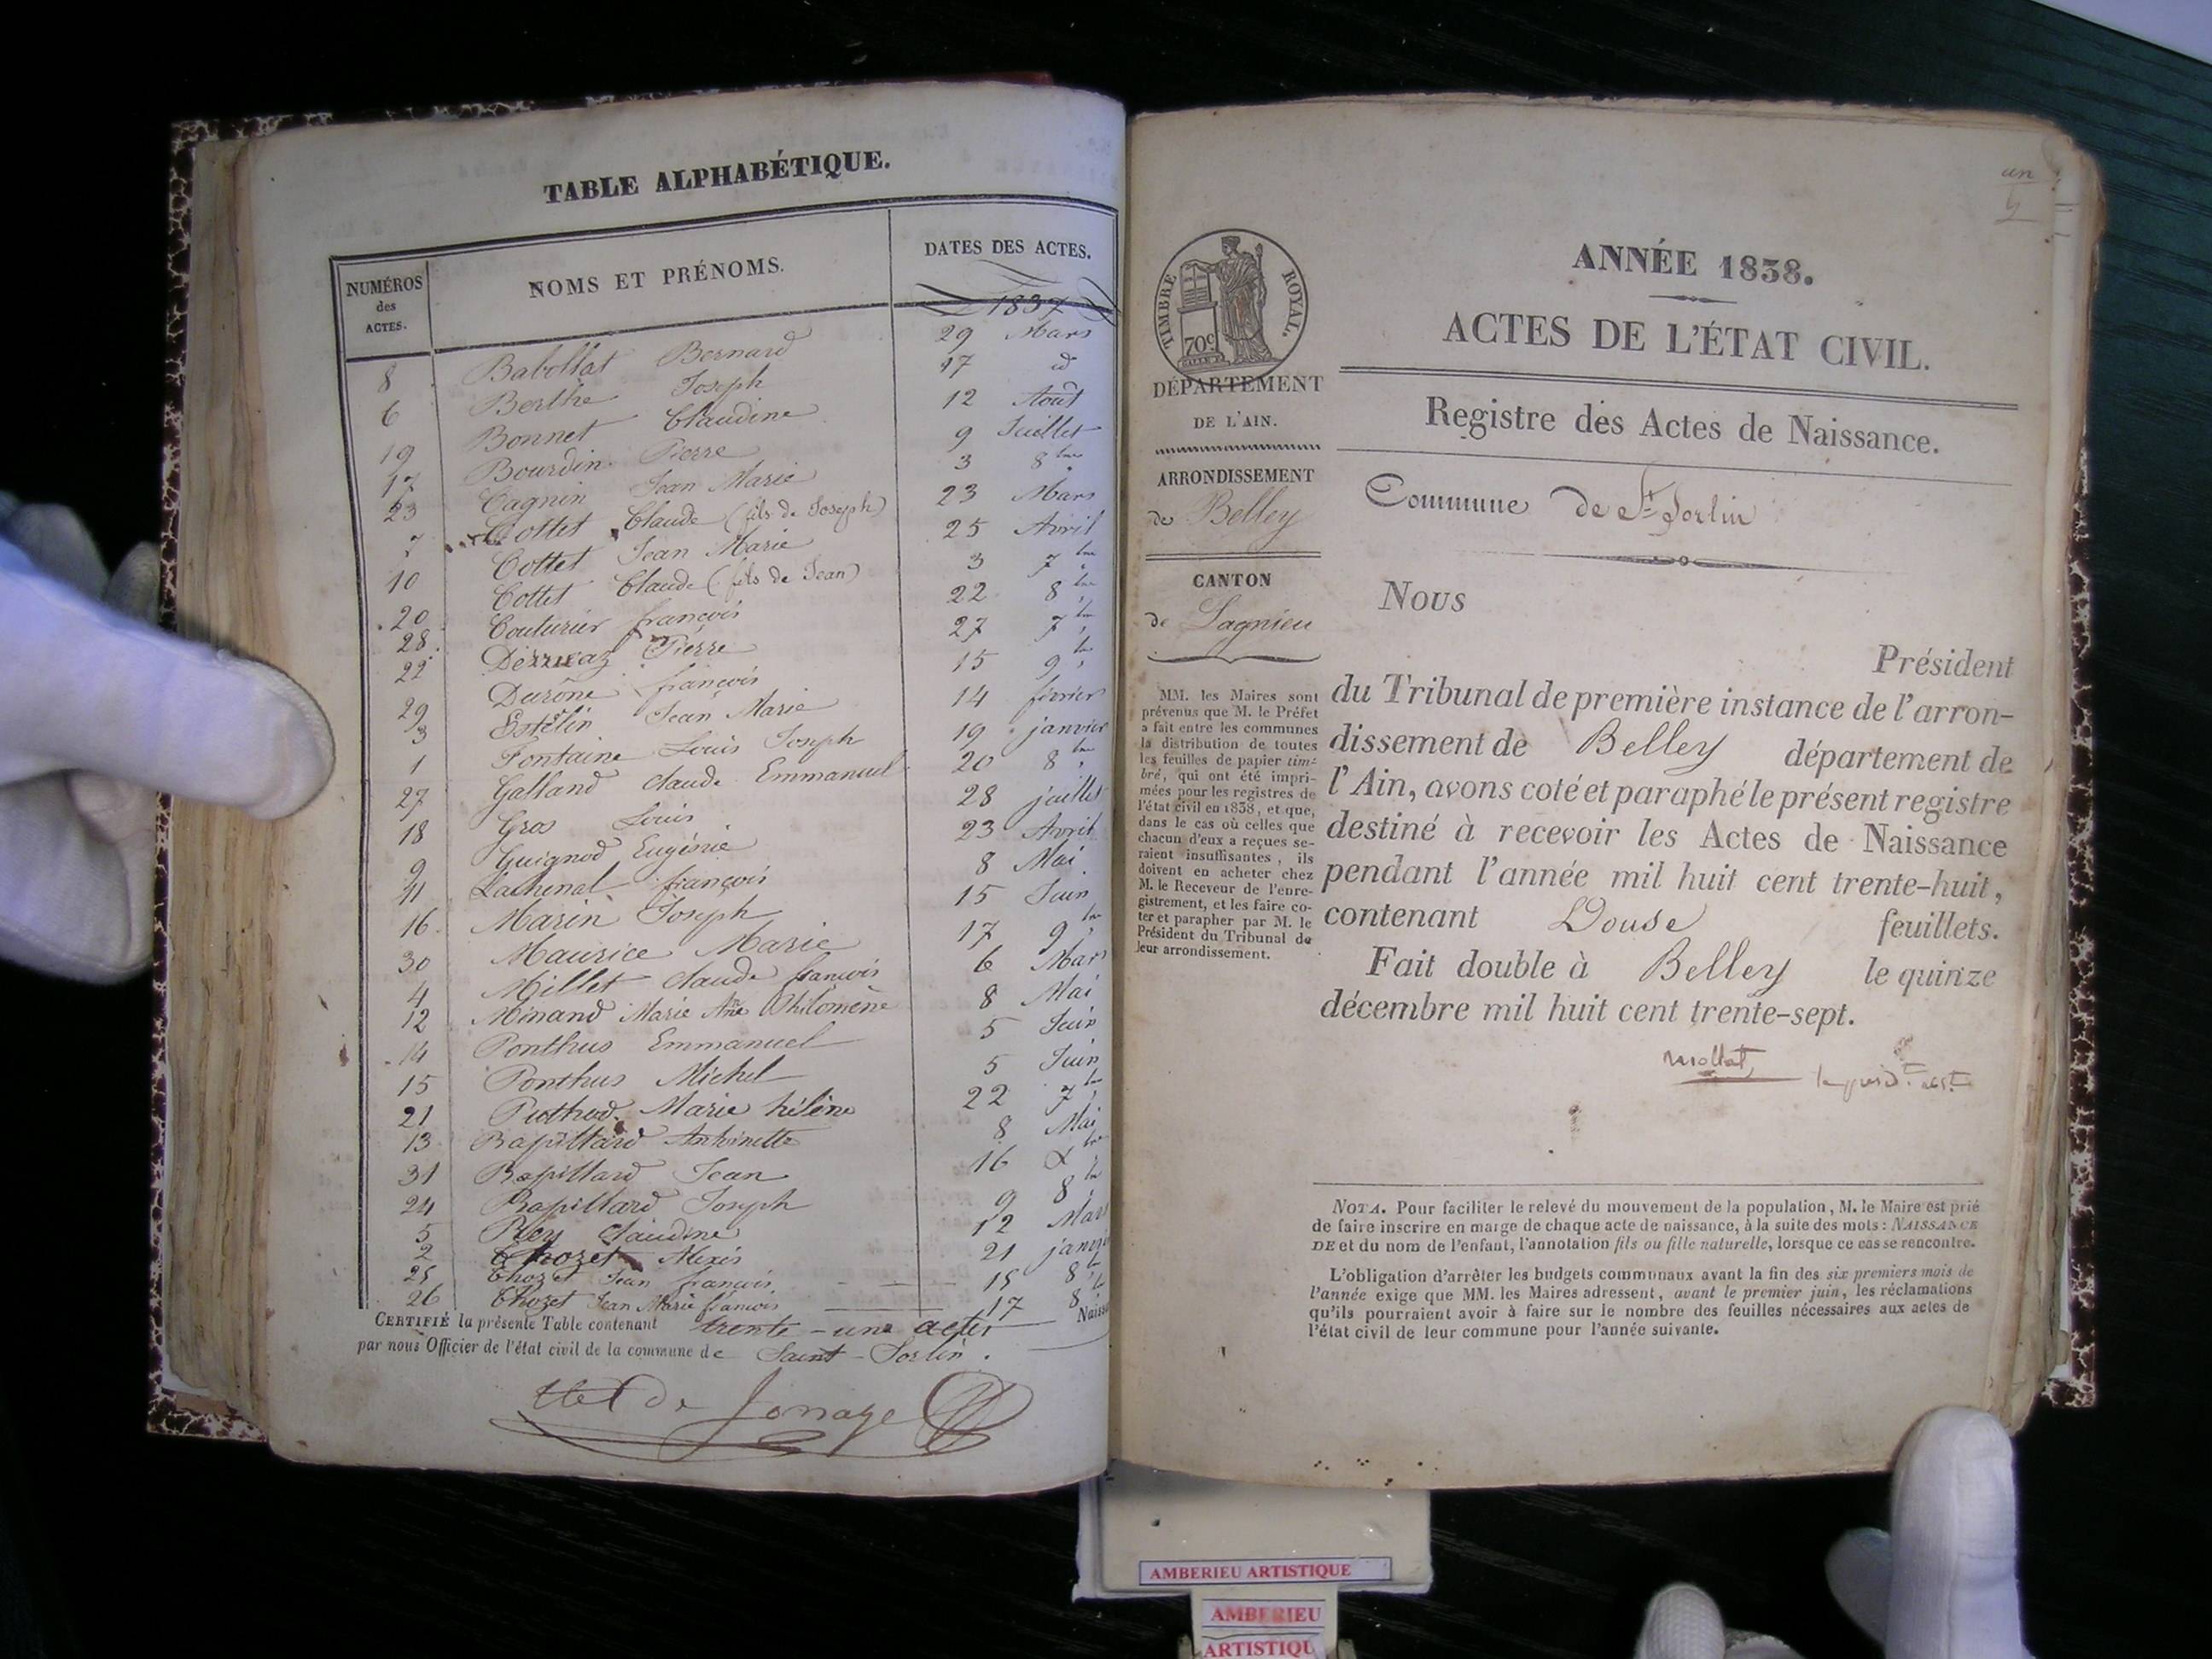 TABLE ALPHABÉTIQUE.
NUMÉROS des ACTES.
NOMS ET PRÉNOMS.
DATES DES ACTES.
1837
8 Babollat Bernard 29 Mars
6 Berthe Joseph 17 id
19 Bonnet Claudine 12 Août
17 Bourdin Pierre 9 Juillet
23 Cagnin Jean Marie 3 8bre
7 Cottet Claude (fils de Joseph) 23 Mars
10 Cottet Jean Marie 25 Avril
20 Cottet Claude (fils de Jean) 3 7bre
28 Couturier françois 22 8bre
22 Pierre 27 7bre
29 Durône françois 15 9bre
3 Estélin Jean Marie 14 février
1 Fontaine Louis Joseph 19 janvier
27 Galland claude Emmanuel 20 8bre
18 Gros Louis 28 juillet
9 Guignod Eugénie 23 Avril
11 Lachenal françois 8 Mai
16 Marin Joseph 15 Juin
30 Maurice Marie 17 9bre
4 Millet claude francois 6 Mars
12 Ménand Marie Ane Philomène 8 Mai
14 Ponthus Emmanuel 5 Juin
15 Ponthus Michel 5 Juin
21 Puthod Marie hélène 22 7bre
13 Rapillard Antoinette 8 Mai
31 Rapillard Jean 16 Xbre
24 Rapillard Joseph 9 8bre
5 Rey claudine 12 Mars
2 Thozet Alexis 21 janvier
25 Thozet Jean françois 15 8bre
26 Thozet Jean Marie francois 17 8bre
CERTIFIÉ la présente Table contenant trente-une actes Naiss
par nous Officier de l'état civil de la commune de Saint-Sorlin.
de Jonage
un
ANNÉE 1838.
ACTES DE L'ÉTAT CIVIL.
Registre des Actes de Naissance.
Commune de St Sorlin
TIMBRE ROYAL.
70c
DÉPARTEMENT
DE L'AIN.
ARRONDISSEMENT
de Belley
CANTON
de Lagnieu
MM. les Maires sont
prévenus que M. le Préfet
a fait entre les communes
la distribution de toutes
les feuilles de papier tim-
bré, qui ont été impri-
mées pour les registres de
l'état civil en 1838, et que,
dans le cas où celles que
chacun d'eux a reçues se-
raient insuffisantes, ils
doivent en acheter chez
M. le Receveur de l'enre-
gistrement, et les faire co-
ter et parapher par M. le
Président du Tribunal de
leur arrondissement.
Nous
Président
du Tribunal de première instance de l'arron-
dissement de Belley département de
l'Ain, avons coté et paraphé le présent registre
destiné à recevoir les Actes de Naissance
pendant l'année mil huit cent trente-huit,
contenant Douse feuillets.
Fait double à Belley le quinze
décembre mil huit cent trente-sept.
mollet
NOTA. Pour faciliter le relevé du mouvement de la population, M. le Maire est prié
de faire inscrire en marge de chaque acte de naissance, à la suite des mots : NAISSANCE
DE et du nom de l'enfant, l'annotation fils ou fille naturelle, lorsque ce cas se rencontre.
L'obligation d'arrêter les budgets communaux avant la fin des six premiers mois de
l'année exige que MM. les Maires adressent, avant le premier juin, les réclamations
qu'ils pourraient avoir à faire sur le nombre des feuilles nécessaires aux actes de
l'état civil de leur commune pour l'année suivante.
AMBERIEU ARTISTIQUE
AMBERIEU
ARTISTIQU